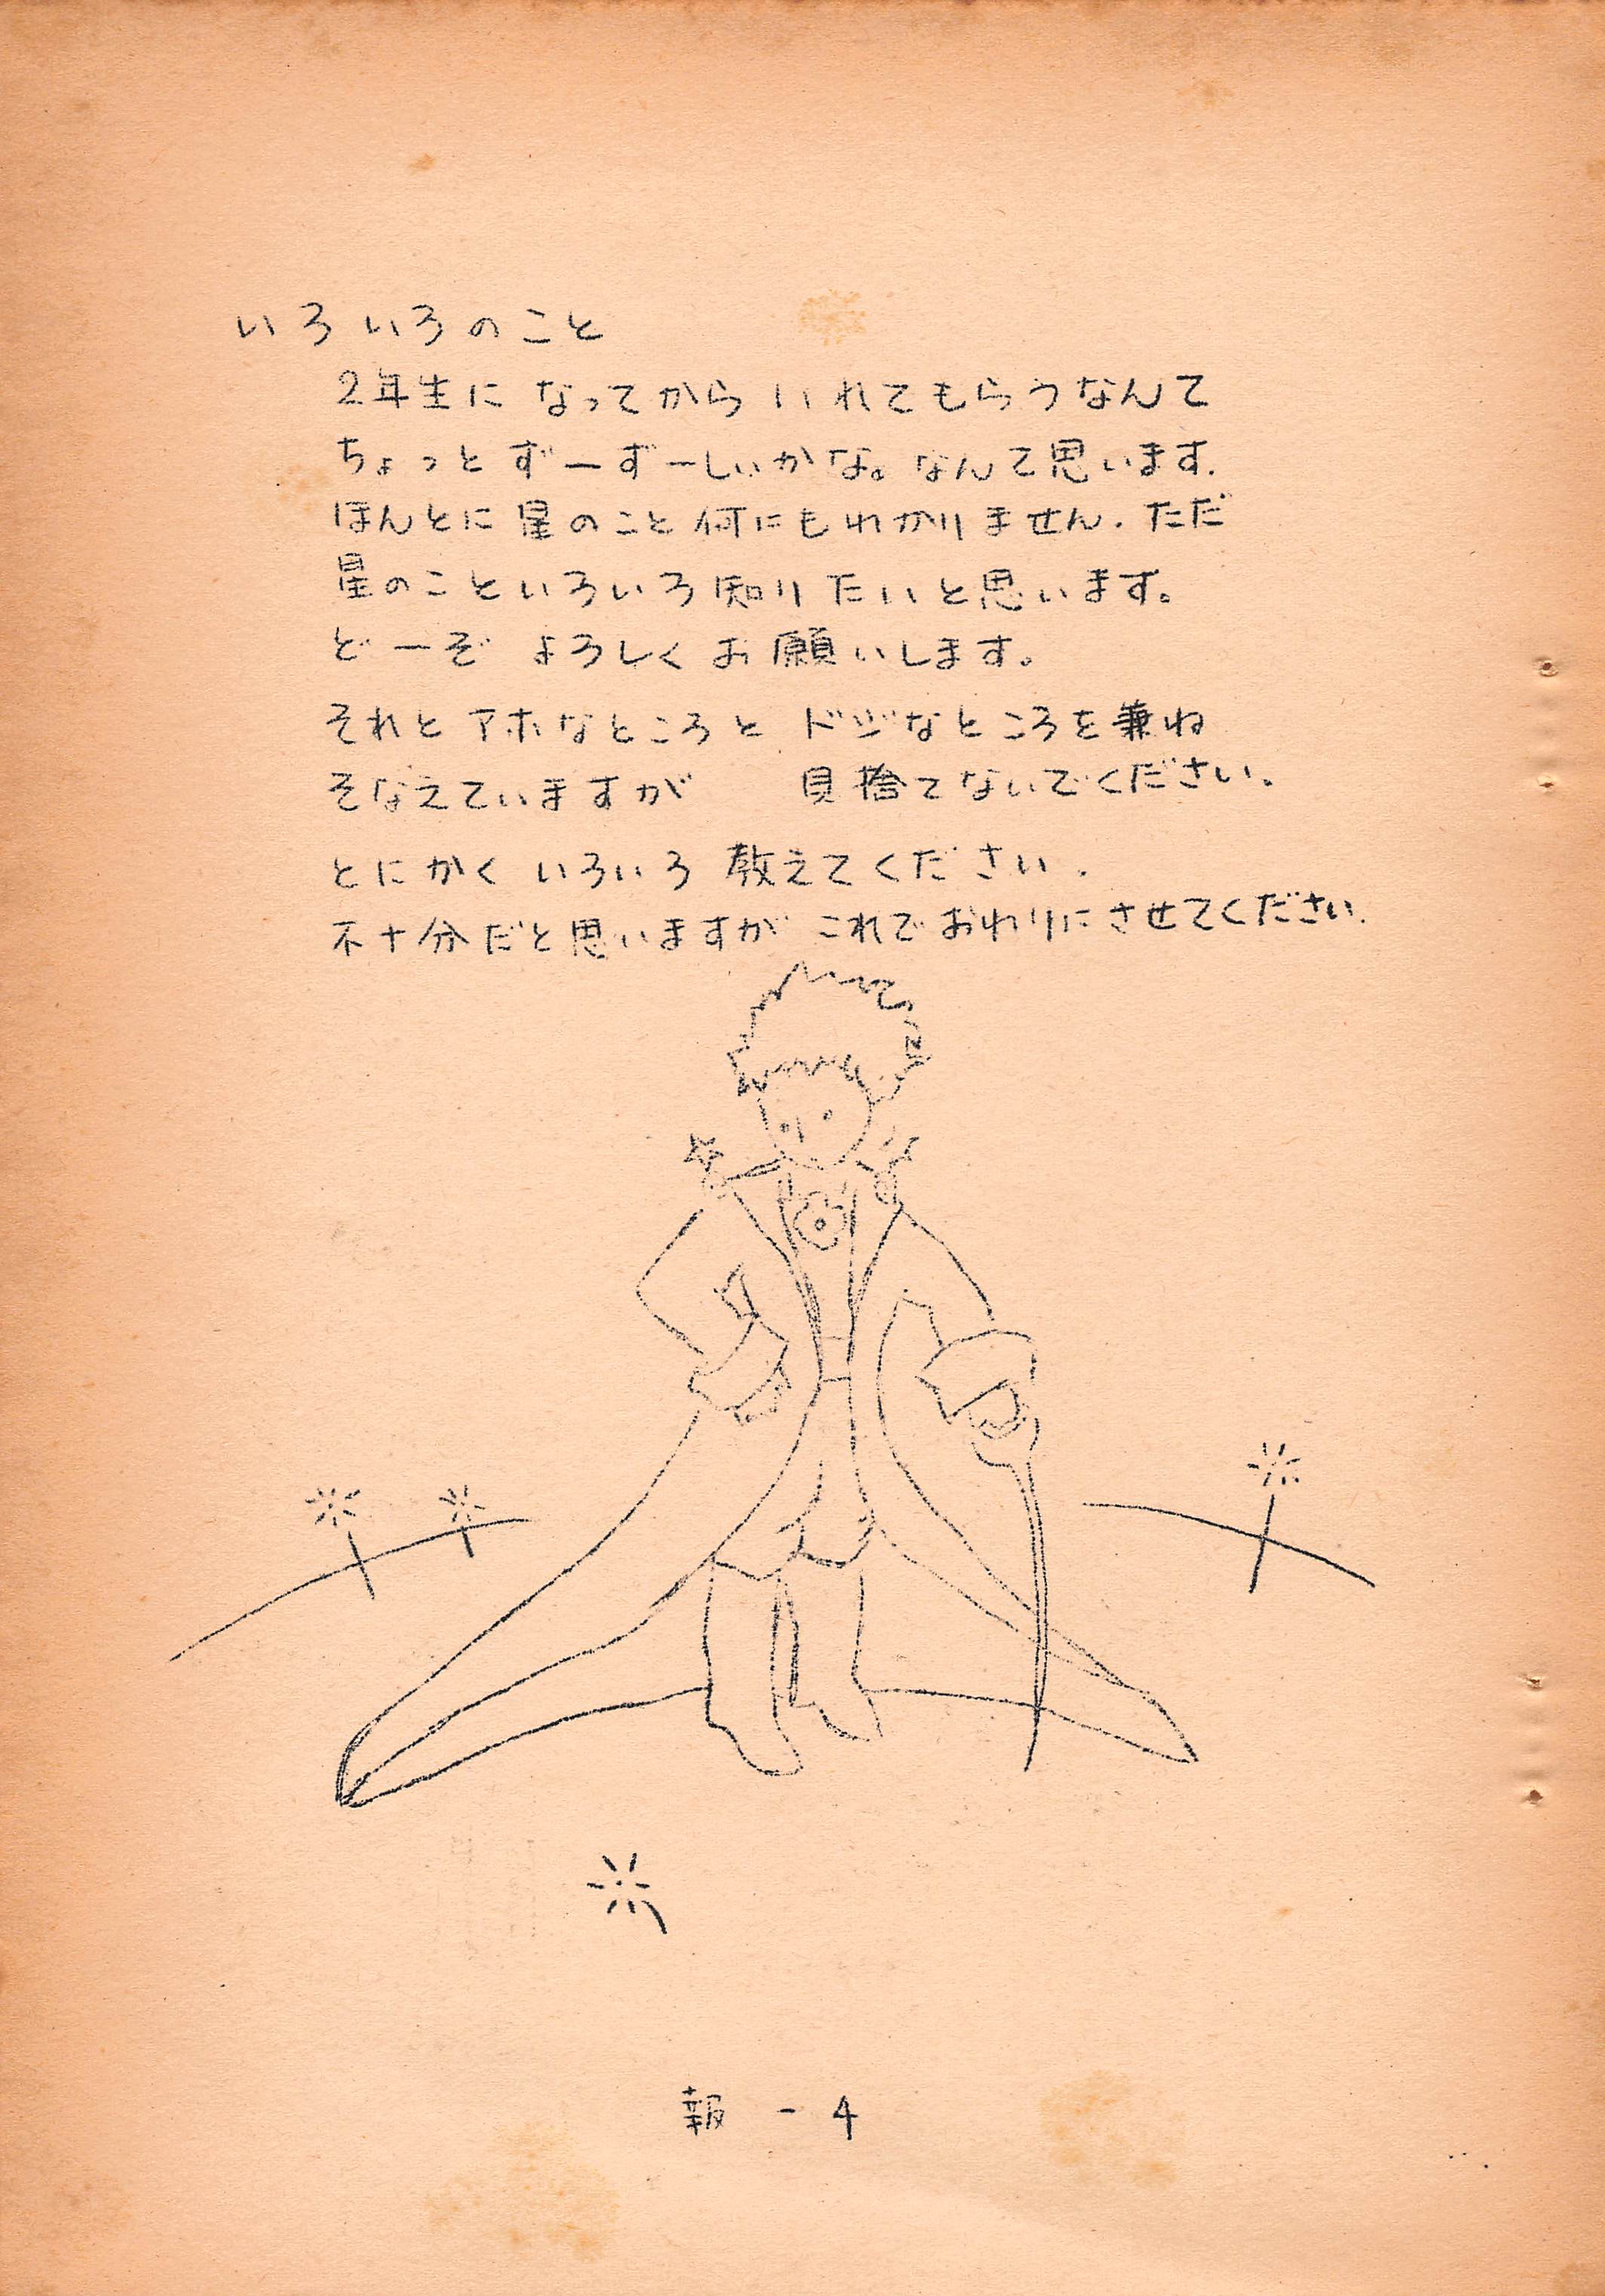 いろいろのこと
2年生になってからいれてもらうなんて
ちょっとずーずーしいかな。なんて思います.
ほんとに星のこと何にもわかりません.ただ
星のこといろいろ知りたいと思います。
どーぞ よろしくお願いします。
それとアホなところと ドジなところを兼ね
そなえていますが 見捨てないでください.
とにかく いろいろ教えてください.
不十分だと思いますが これでおわりにさせてください.
報 - 4